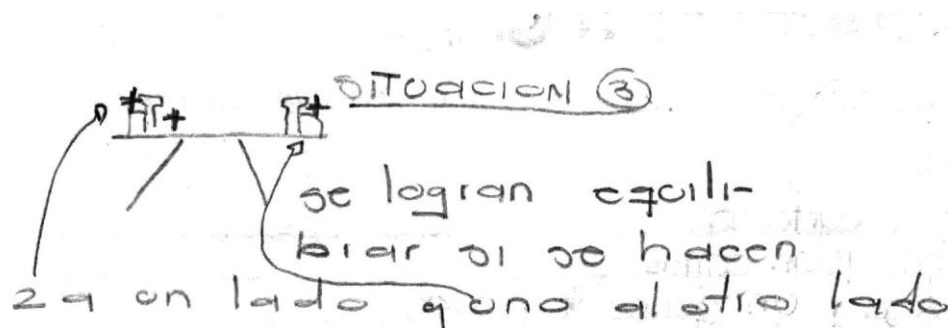 SITUACION 3
se logran equili-
brar si se hacen
2 a un lado y uno al otro lado